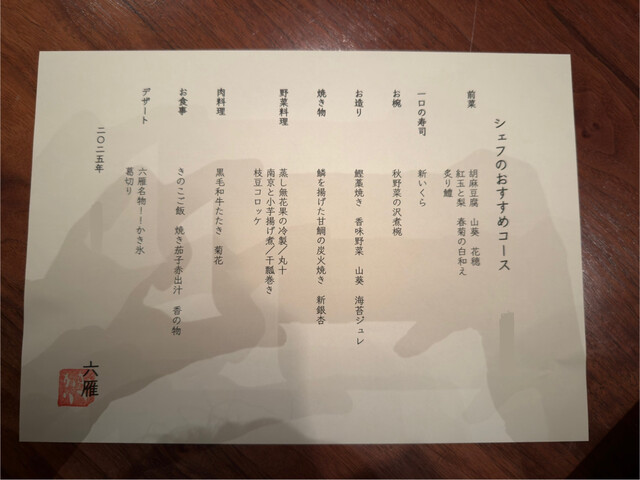 シェフのおすすめコース
前菜
胡麻豆腐 山葵 花穂
紅玉と梨 春菊の白和え
炙り鱧
一口の寿司
新いくら
お椀
秋野菜の沢煮椀
お造り
鰹藁焼き 香味野菜 山葵 海苔ジュレ
焼き物
鱗を揚げた甘鯛の炭火焼き 新銀杏
野菜料理
蒸し無花果の冷製/丸十
南京と小芋揚げ煮/干瓢巻き
枝豆コロッケ
肉料理
黒毛和牛たたき 菊花
お食事
きのこご飯 焼き茄子赤出汁 香の物
デザート
六雁名物!!かき氷
葛切り
二〇二五年
六雁